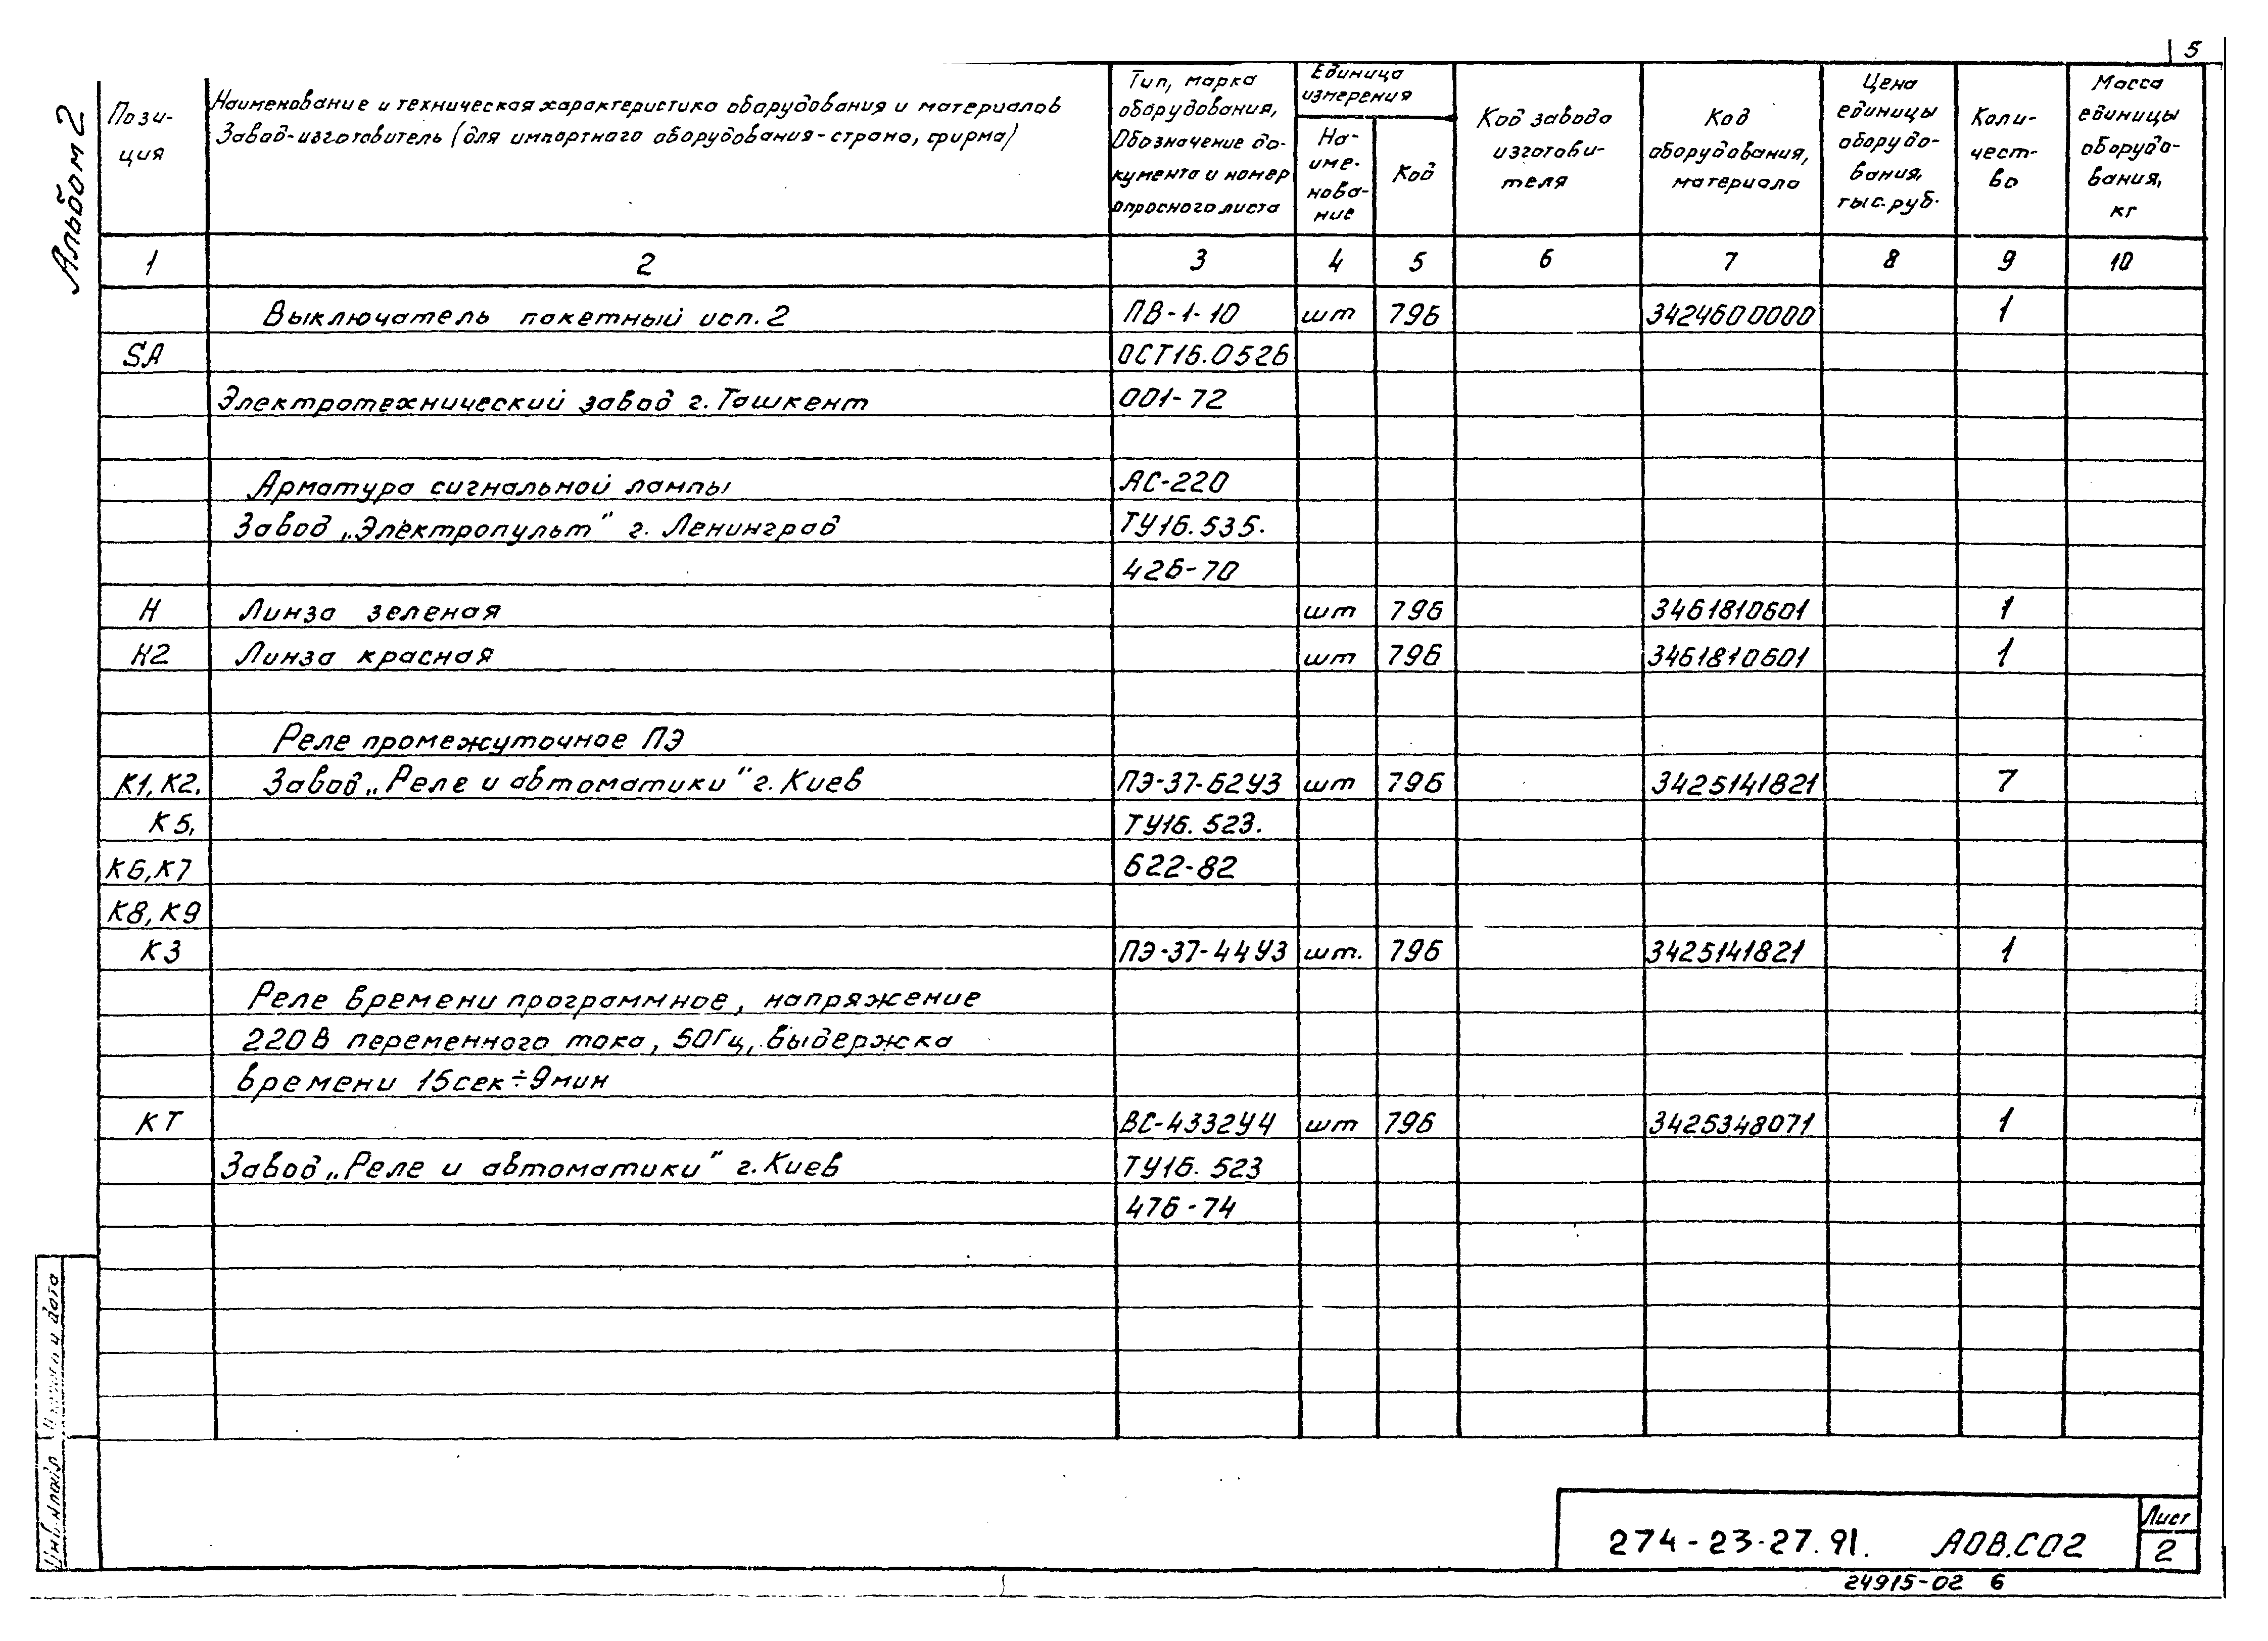 5
Альбом 2
Пози-
ция
Наименование и техническая характеристика оборудования и материалов
Завод-изготовитель (для импортного оборудования-страна, фирма)
Тип, марка
оборудования,
Обозначение до-
кумента и номер
опросного листа
Единица
измерения
На-
име-
нова-
ние
Код
Код завода
изготови-
теля
Код
оборудования,
материала
Цена
единицы
оборудо-
вания,
тыс.руб.
Коли-
чест-
во
Масса
единицы
оборудо-
вания,
кг
1 2 3 4 5 6 7 8 9 10
Выключатель пакетный исп. 2 ПВ-1-10 шт 796 3424600000 1
SA ОСТ16.0526
Электротехнический завод г. Ташкент 001-72
Арматура сигнальной лампы АС-220
Завод „Электропульт" г. Ленинград ТУ16.535.
426-70
Н Линза зеленая шт 796 3461810601 1
Н2 Линза красная шт 796 3461810601 1
Реле промежуточное ПЭ
К1, К2, Завод „Реле и автоматики" г. Киев ПЭ-37-62У3 шт 796 3425141821 7
К5, ТУ16. 523.
К6, К7 622-82
К8, К9
К3 ПЭ-37-44У3 шт. 796 3425141821 1
Реле времени программное, напряжение
220В переменного тока, 50Гц, выдержка
времени 15сек÷9мин
КТ ВС-4332У4 шт 796 3425348071 1
Завод „Реле и автоматики" г. Киев ТУ16. 523
476-74
Инв.№подл. Подпись и дата
274-23-27.91. АОВ.СО2
Лист
2
24915-02 6